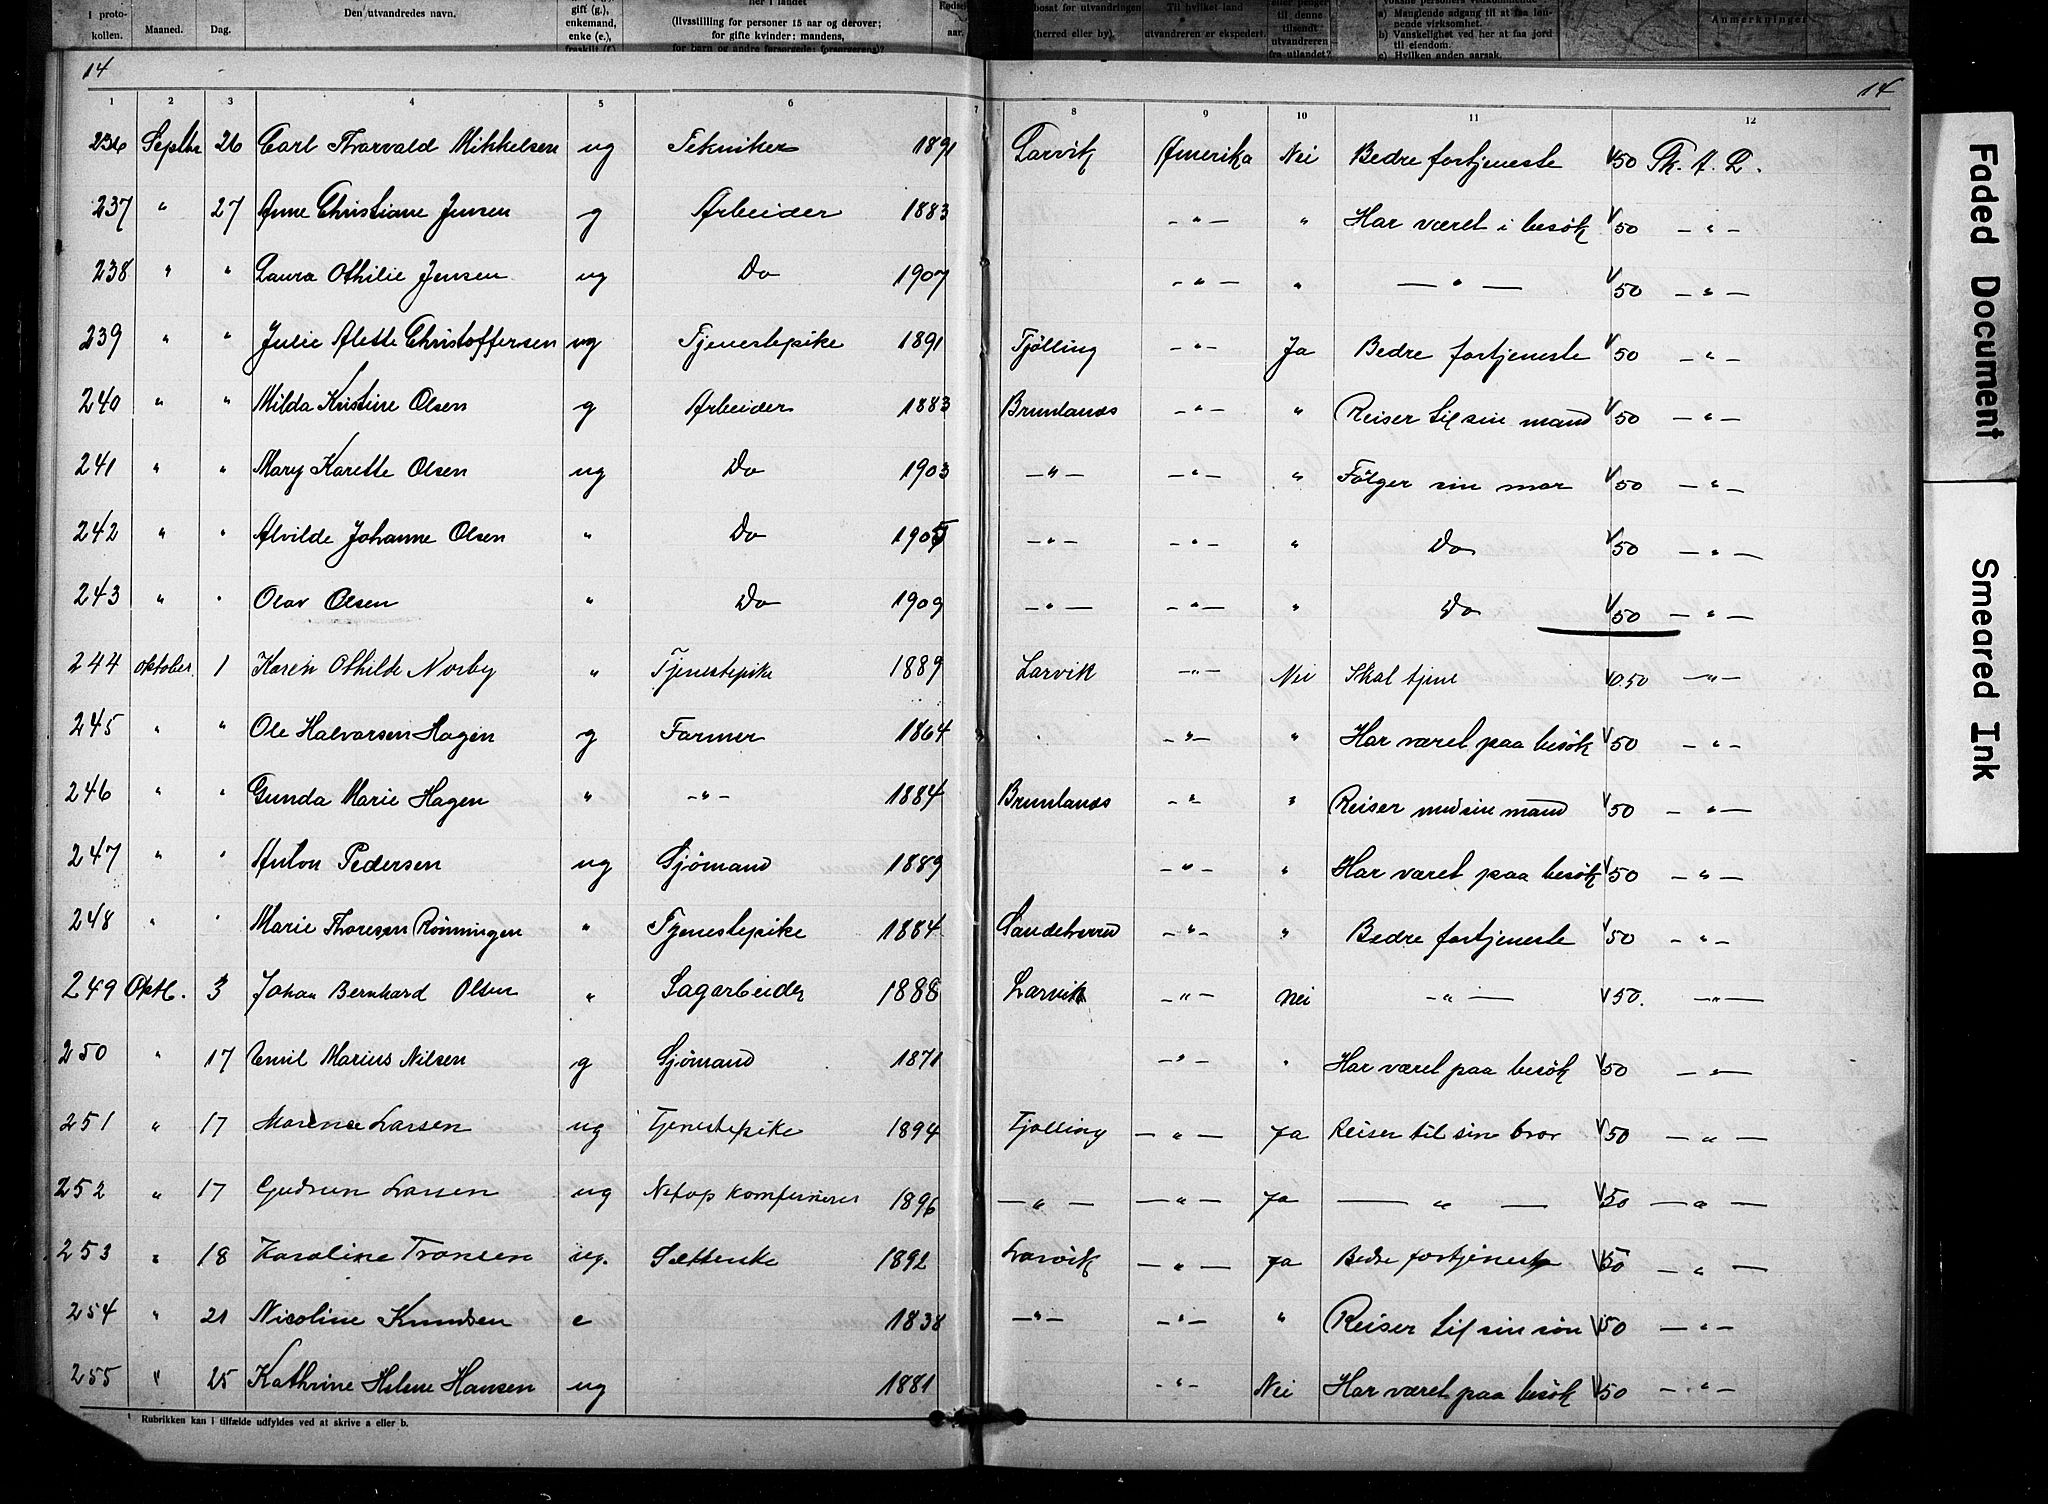 I proto-
kollen.
Maaned.
Dag.
Den utvandredes navn.
gift (g.),
enkemand,
enke (e.),
her i landet
(livsstilling for personer 15 aar og derover;
for gifte kvinder: mandens,
for barn og andre forsørgede: forsørgerens)?
Fødsels-
aar.
bosat før utvandringen
(herred eller by).
Til hvilket land
utvandreren er ekspedert.
eller penger
til denne
tilsendt
utvandreren
fra utlandet?
a) Manglende adgang til at faa løn-
nende virksomhet.
b) Vanskelighet ved her at faa jord
til eiendom.
c) Hvilken anden aarsak.
Anmerkninger
14
14
1 2 3 4 5 6 7 8 9 10 11 12
236 Septbr 26 Carl Thorvald Mikkelsen ug Tekniker 1891 Larvik Amerika Nei Bedre fortjeneste 1/50 Th. A. L.
237 " 27 Anne Christiane Jensen g Arbeider 1883 - " - " Har været i besök 1/50 - " -
238 " " Laura Othilie Jensen ug Do 1907 - " - " - " - 1/50 - " -
239 " " Julie Alette Christoffersen ug Tjenestepike 1891 Tjölling - " - Ja Bedre fortjeneste 1/50 - " -
240 " " Milda Kristine Olsen g Arbeider 1883 Brunlanäs - " - " Reiser til sin mand 1/50 - " -
241 " " Mary Karette Olsen ug Do 1903 - " - - " - " Fölger sin mor 1/50 - " -
242 " " Alvilde Johanne Olsen " Do 1905 - " - - " - " Do 1/50 - " -
243 " " Olav Olsen " Do 1909 - " - - " - " Do 1/50 - " -
244 oktober 1 Karen Othilde Norby " Tjenestepike 1889 Larvik - " - Nei Skal tjene 1/0.50 - " -
245 " " Ole Halvorsen Hagen g Farmer 1864 - " - " Har været paa besök 1/50 - " -
246 " " Gunda Marie Hagen " - " - 1884 Brunlanäs - " - " Reiser med sin mand 1/50 - " -
247 " " Anton Pedersen ug Sjömand 1889 - " - " Har været paa besök 1/50 - " -
248 " " Marie Thoresen Rönningen " Tjenestepike 1884 Sandeherred - " - " Bedre fortjeneste 1/50 - " -
249 Oktb. 3 Johan Bernhard Olsen " Sagarbeider 1888 Larvik - " - Nei - " - 1/50. - " -
250 " 17 Emil Marius Nilsen g Sjömand 1871 - " - " Har været paa besök 1/50 - " -
251 " 17 Marence Larsen ug Tjenestepike 1894 Tjølling - " - Ja Reiser til sin bror 1/50 - " -
252 " 17 Gudrun Larsen ug Netop konfirmeret 1896 - " - - " - Ja - " - 1/50 - " -
253 " 18 Karoline Fransen ug. Sætterske 1892 Larvik - " - Ja Bedre fortjeneste 1/50 - " -
254 " 21 Nicoline Knudsen e 1838 - " - - " - " Reiser til sin sön 1/50 - " -
255 " 25 Kathrine Helene Hansen ug 1881 - " - Nei Har været paa besök 1/50 - " -
¹ Rubrikken kan i tilfælde utfyldes ved at skrive a eller b.
Faded Document
Smeared Ink